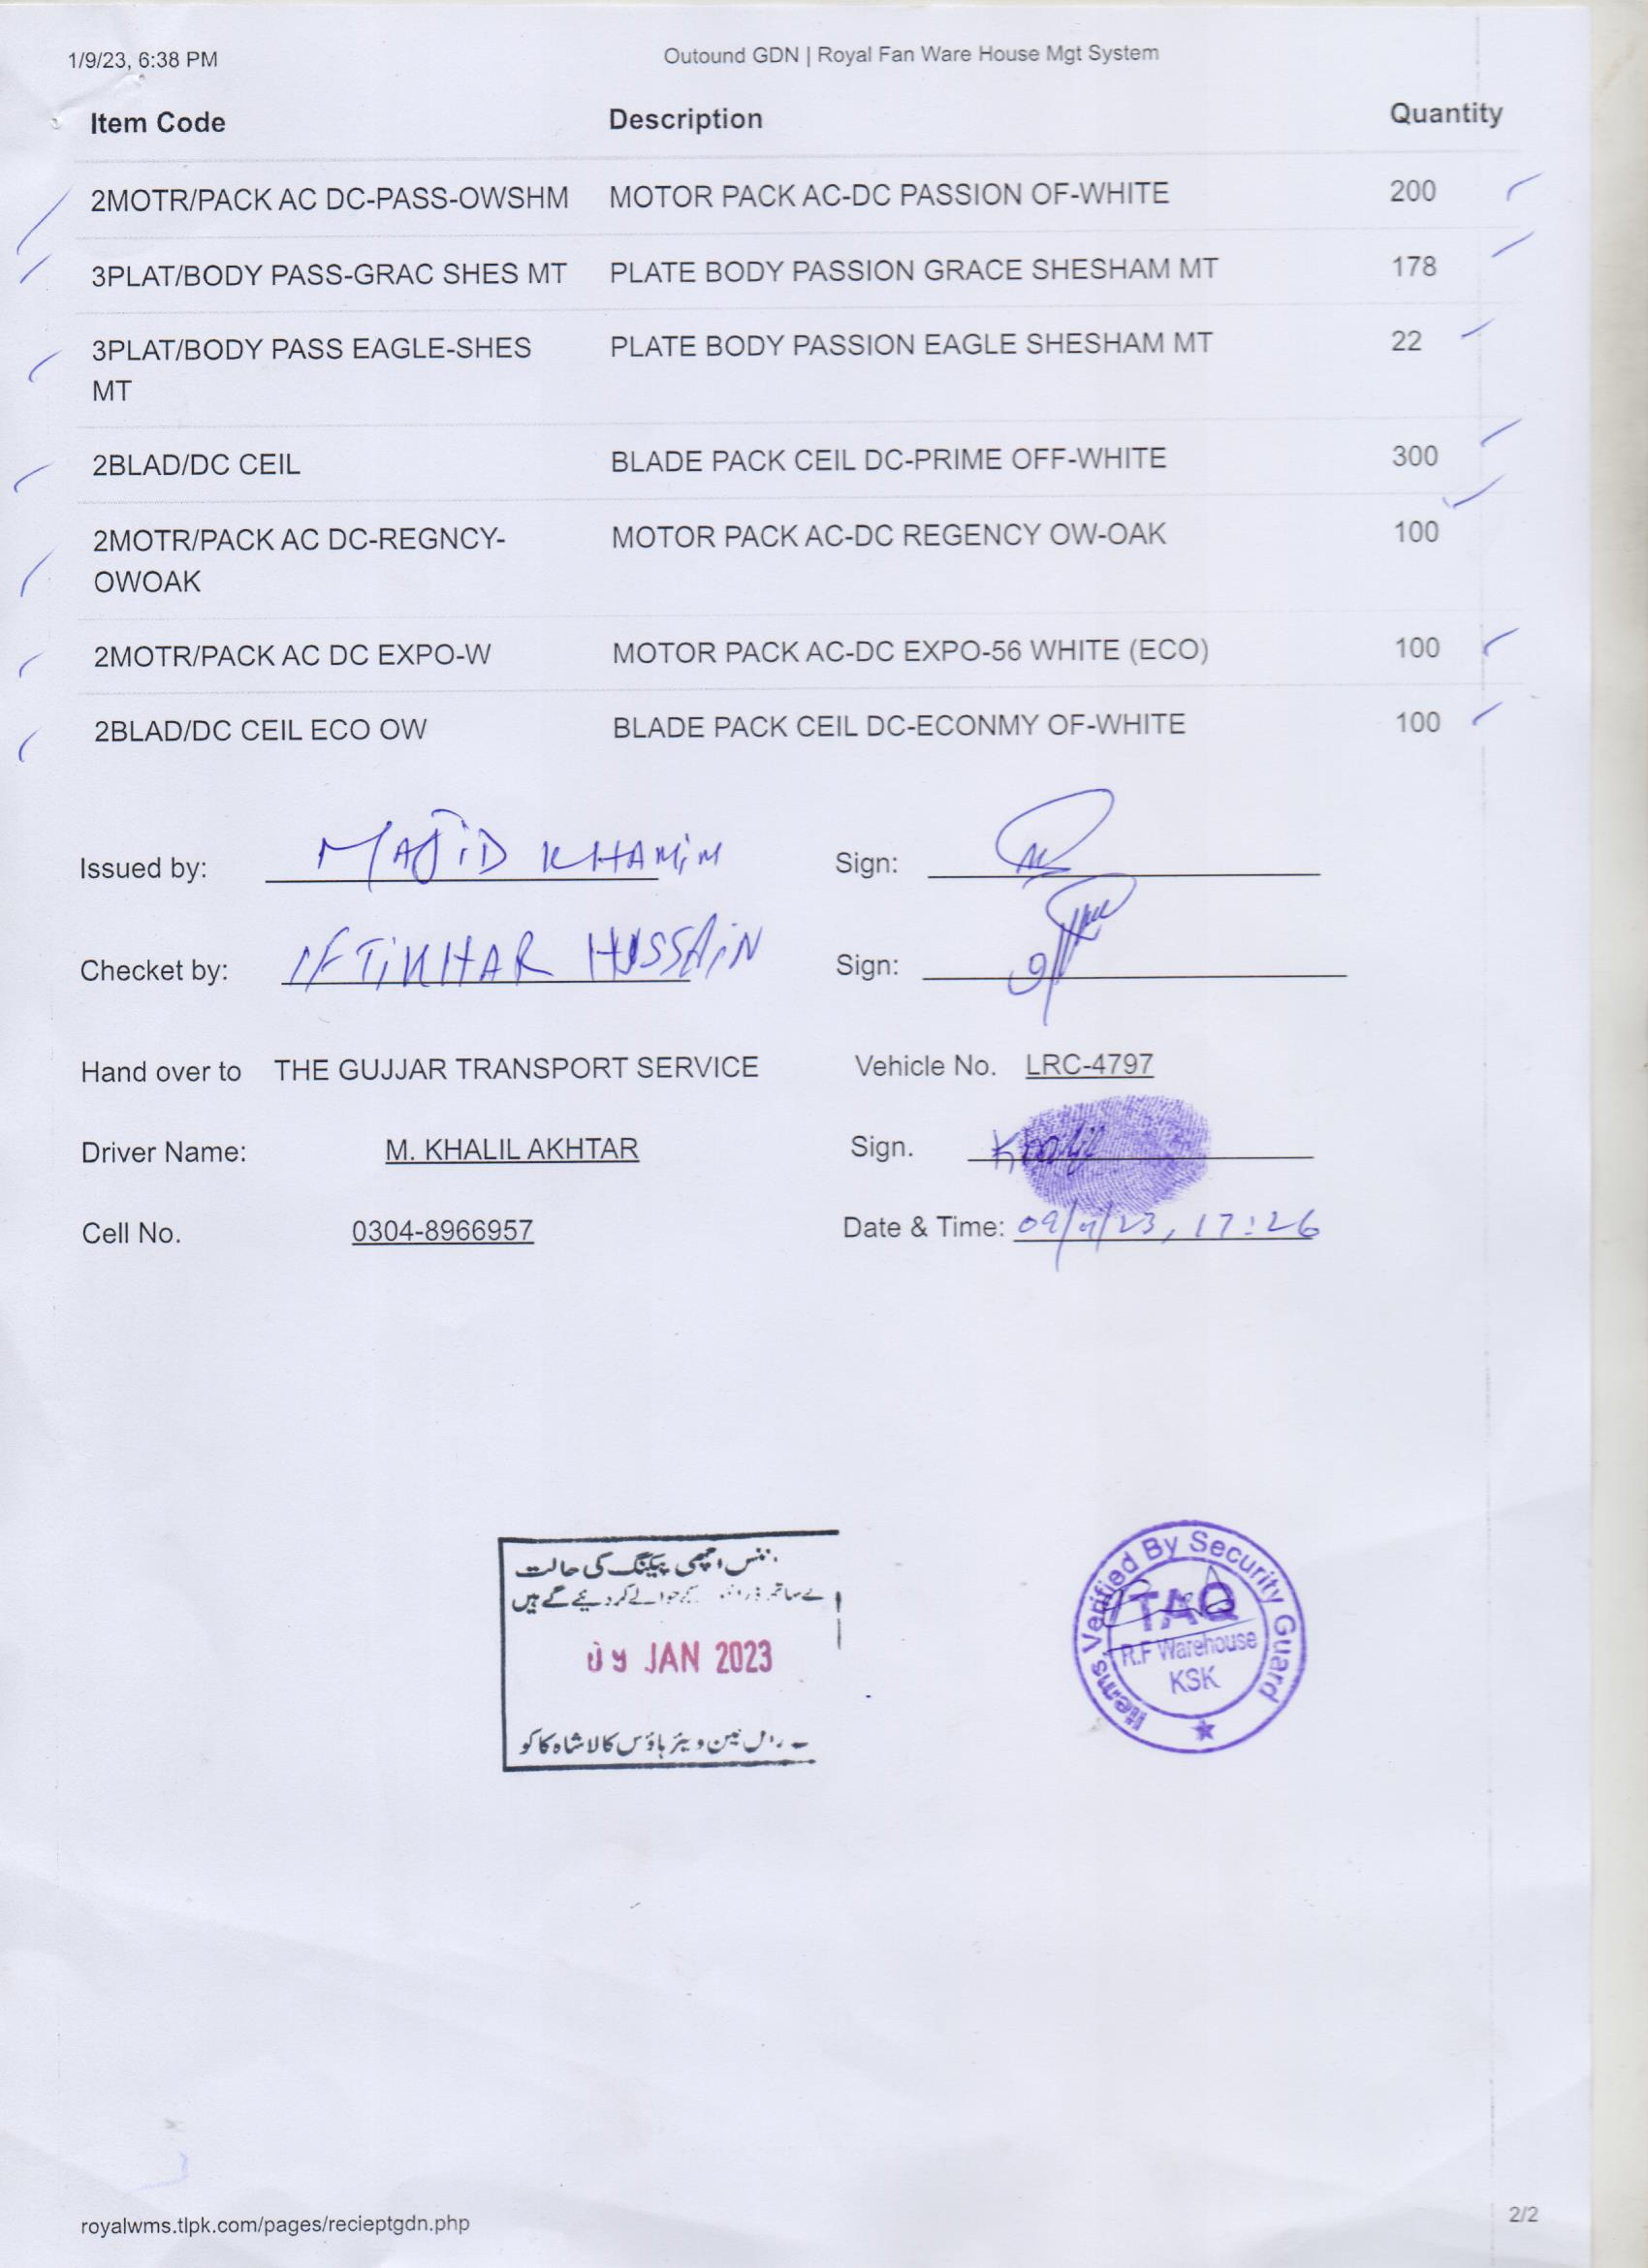 1/9/23, 6:38 PM Outound GDN | Royal Fan Ware House Mgt System
Item Code Description Quantity
2MOTR/PACK AC DC-PASS-OWSHM MOTOR PACK AC-DC PASSION OF-WHITE 200
3PLAT/BODY PASS-GRAC SHES MT PLATE BODY PASSION GRACE SHESHAM MT 178
3PLAT/BODY PASS EAGLE-SHES PLATE BODY PASSION EAGLE SHESHAM MT 22
MT
2BLAD/DC CEIL BLADE PACK CEIL DC-PRIME OFF-WHITE 300
2MOTR/PACK AC DC-REGNCY- MOTOR PACK AC-DC REGENCY OW-OAK 100
OWOAK
2MOTR/PACK AC DC EXPO-W MOTOR PACK AC-DC EXPO-56 WHITE (ECO) 100
2BLAD/DC CEIL ECO OW BLADE PACK CEIL DC-ECONMY OF-WHITE 100
Issued by: MAJID KHAMIM Sign:
Checket by: IFTIKHAR HUSSAIN Sign:
Hand over to THE GUJJAR TRANSPORT SERVICE Vehicle No. LRC-4797
Driver Name: M. KHALIL AKHTAR Sign. Khalil
Cell No. 0304-8966957 Date & Time: 09/1/23, 17:26
اچھی پیکنگ کی حالت
کر دیئے گے ہیں
09 JAN 2023
فین ویئر ہاؤس کالا شاہ کاکو
Items Verified By Security Guard
TAQ
R.F Warehouse
KSK
royalwms.tlpk.com/pages/recieptgdn.php 2/2